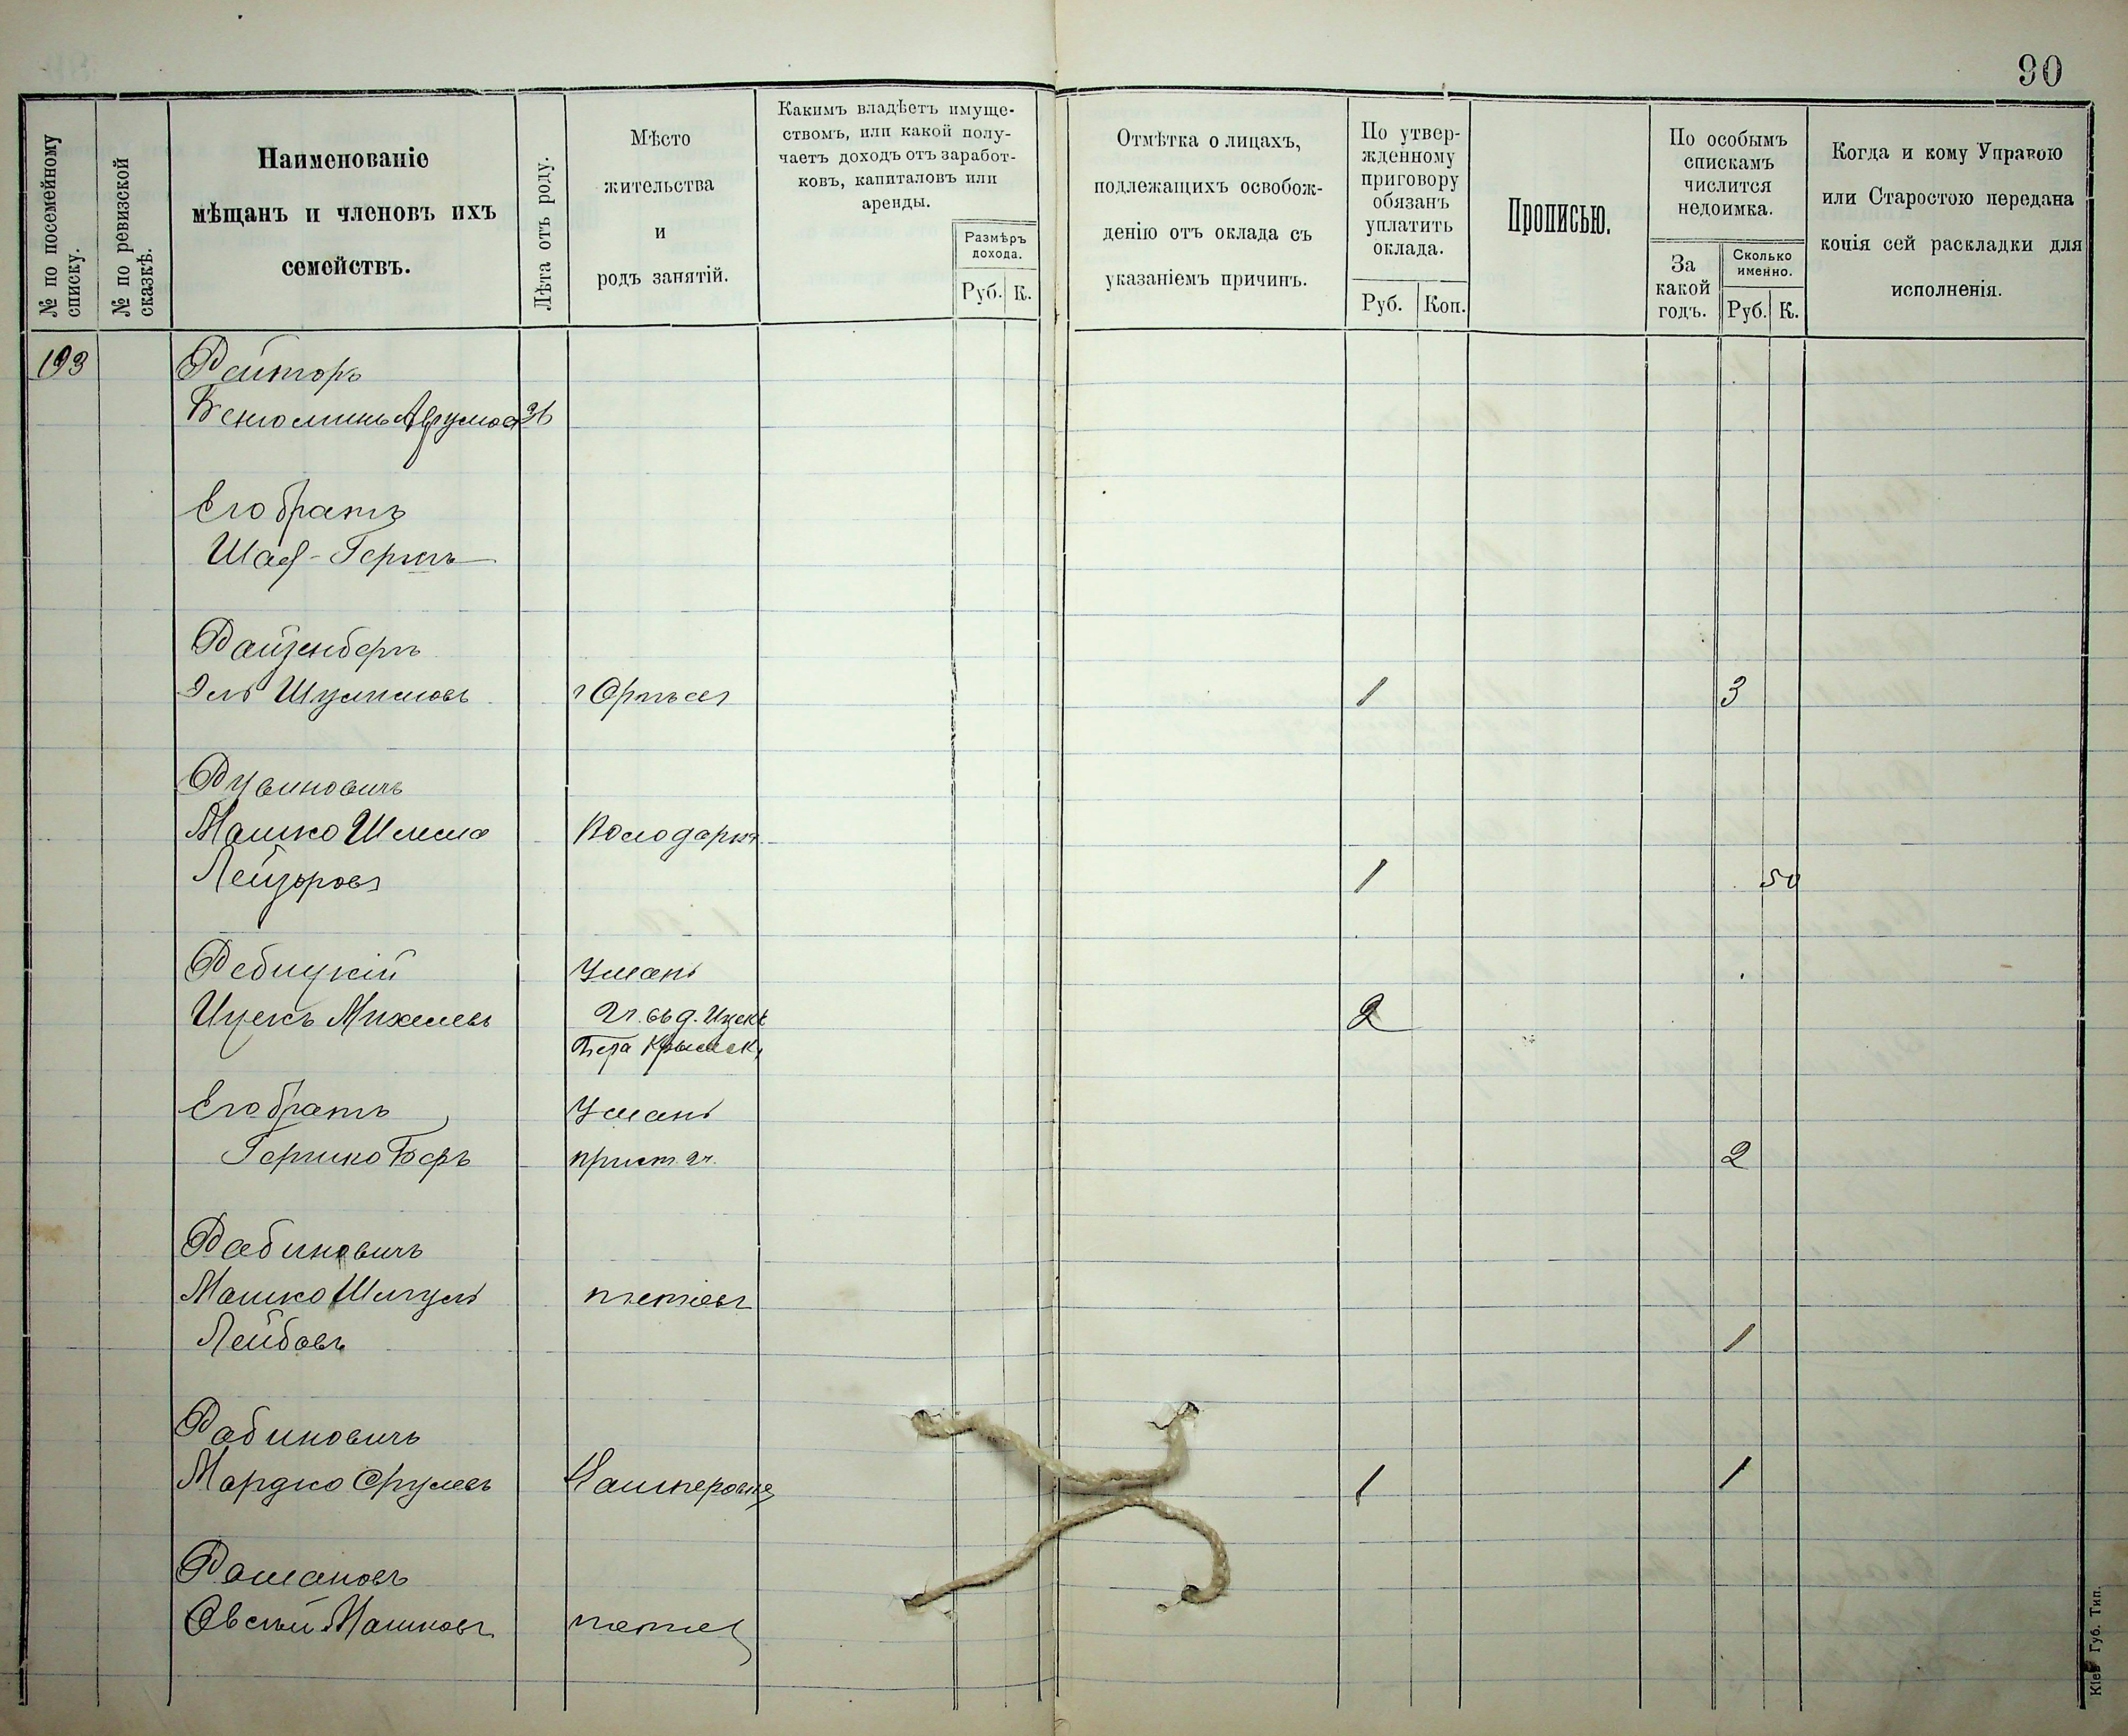 90
№ по посемейному списку.
№ по ревизской сказкѣ.
Наименованіе
мѣщанъ и членовъ ихъ
семействъ.
Лѣта отъ роду.
Мѣсто
жительства
и
родъ занятій.
Какимъ владѣетъ имуще-
ствомъ, или какой полу-
чаетъ доходъ отъ заработ-
ковъ, капиталовъ или
аренды.
Размѣръ
дохода.
Руб. К.
Отмѣтка о лицахъ,
подлежащихъ освобож-
денію отъ оклада съ
указаніемъ причинъ.
По утвер-
жденному
приговору
обязанъ
уплатить
оклада.
Руб. Коп.
Прописью.
По особымъ
спискамъ
числится
недоимка.
За
какой
годъ.
Сколько
именно.
Руб. К.
Когда и кому Управою
или Старостою передана
копія сей раскладки для
исполненія.
193 Рейторъ
Бенюминъ Аврумов 36
Его братъ
Гершъ
Райзенбергъ
Шулимовъ 1 3
Рувиновичъ
Мошко Шлема Володарка
Лейзоровъ 1 50
Ребицкій Умань
Ицекъ Михелевъ 2
Его братъ Умань
Гершко Беръ прист. 2ч. 2
Рабиновичъ
Мошко Шмуль
Лейбовъ 1
Рабиновичъ
Мордко Срулевъ 1 1
Романовъ
Овсѣй Мошковъ
Кіев Губ. Тип.